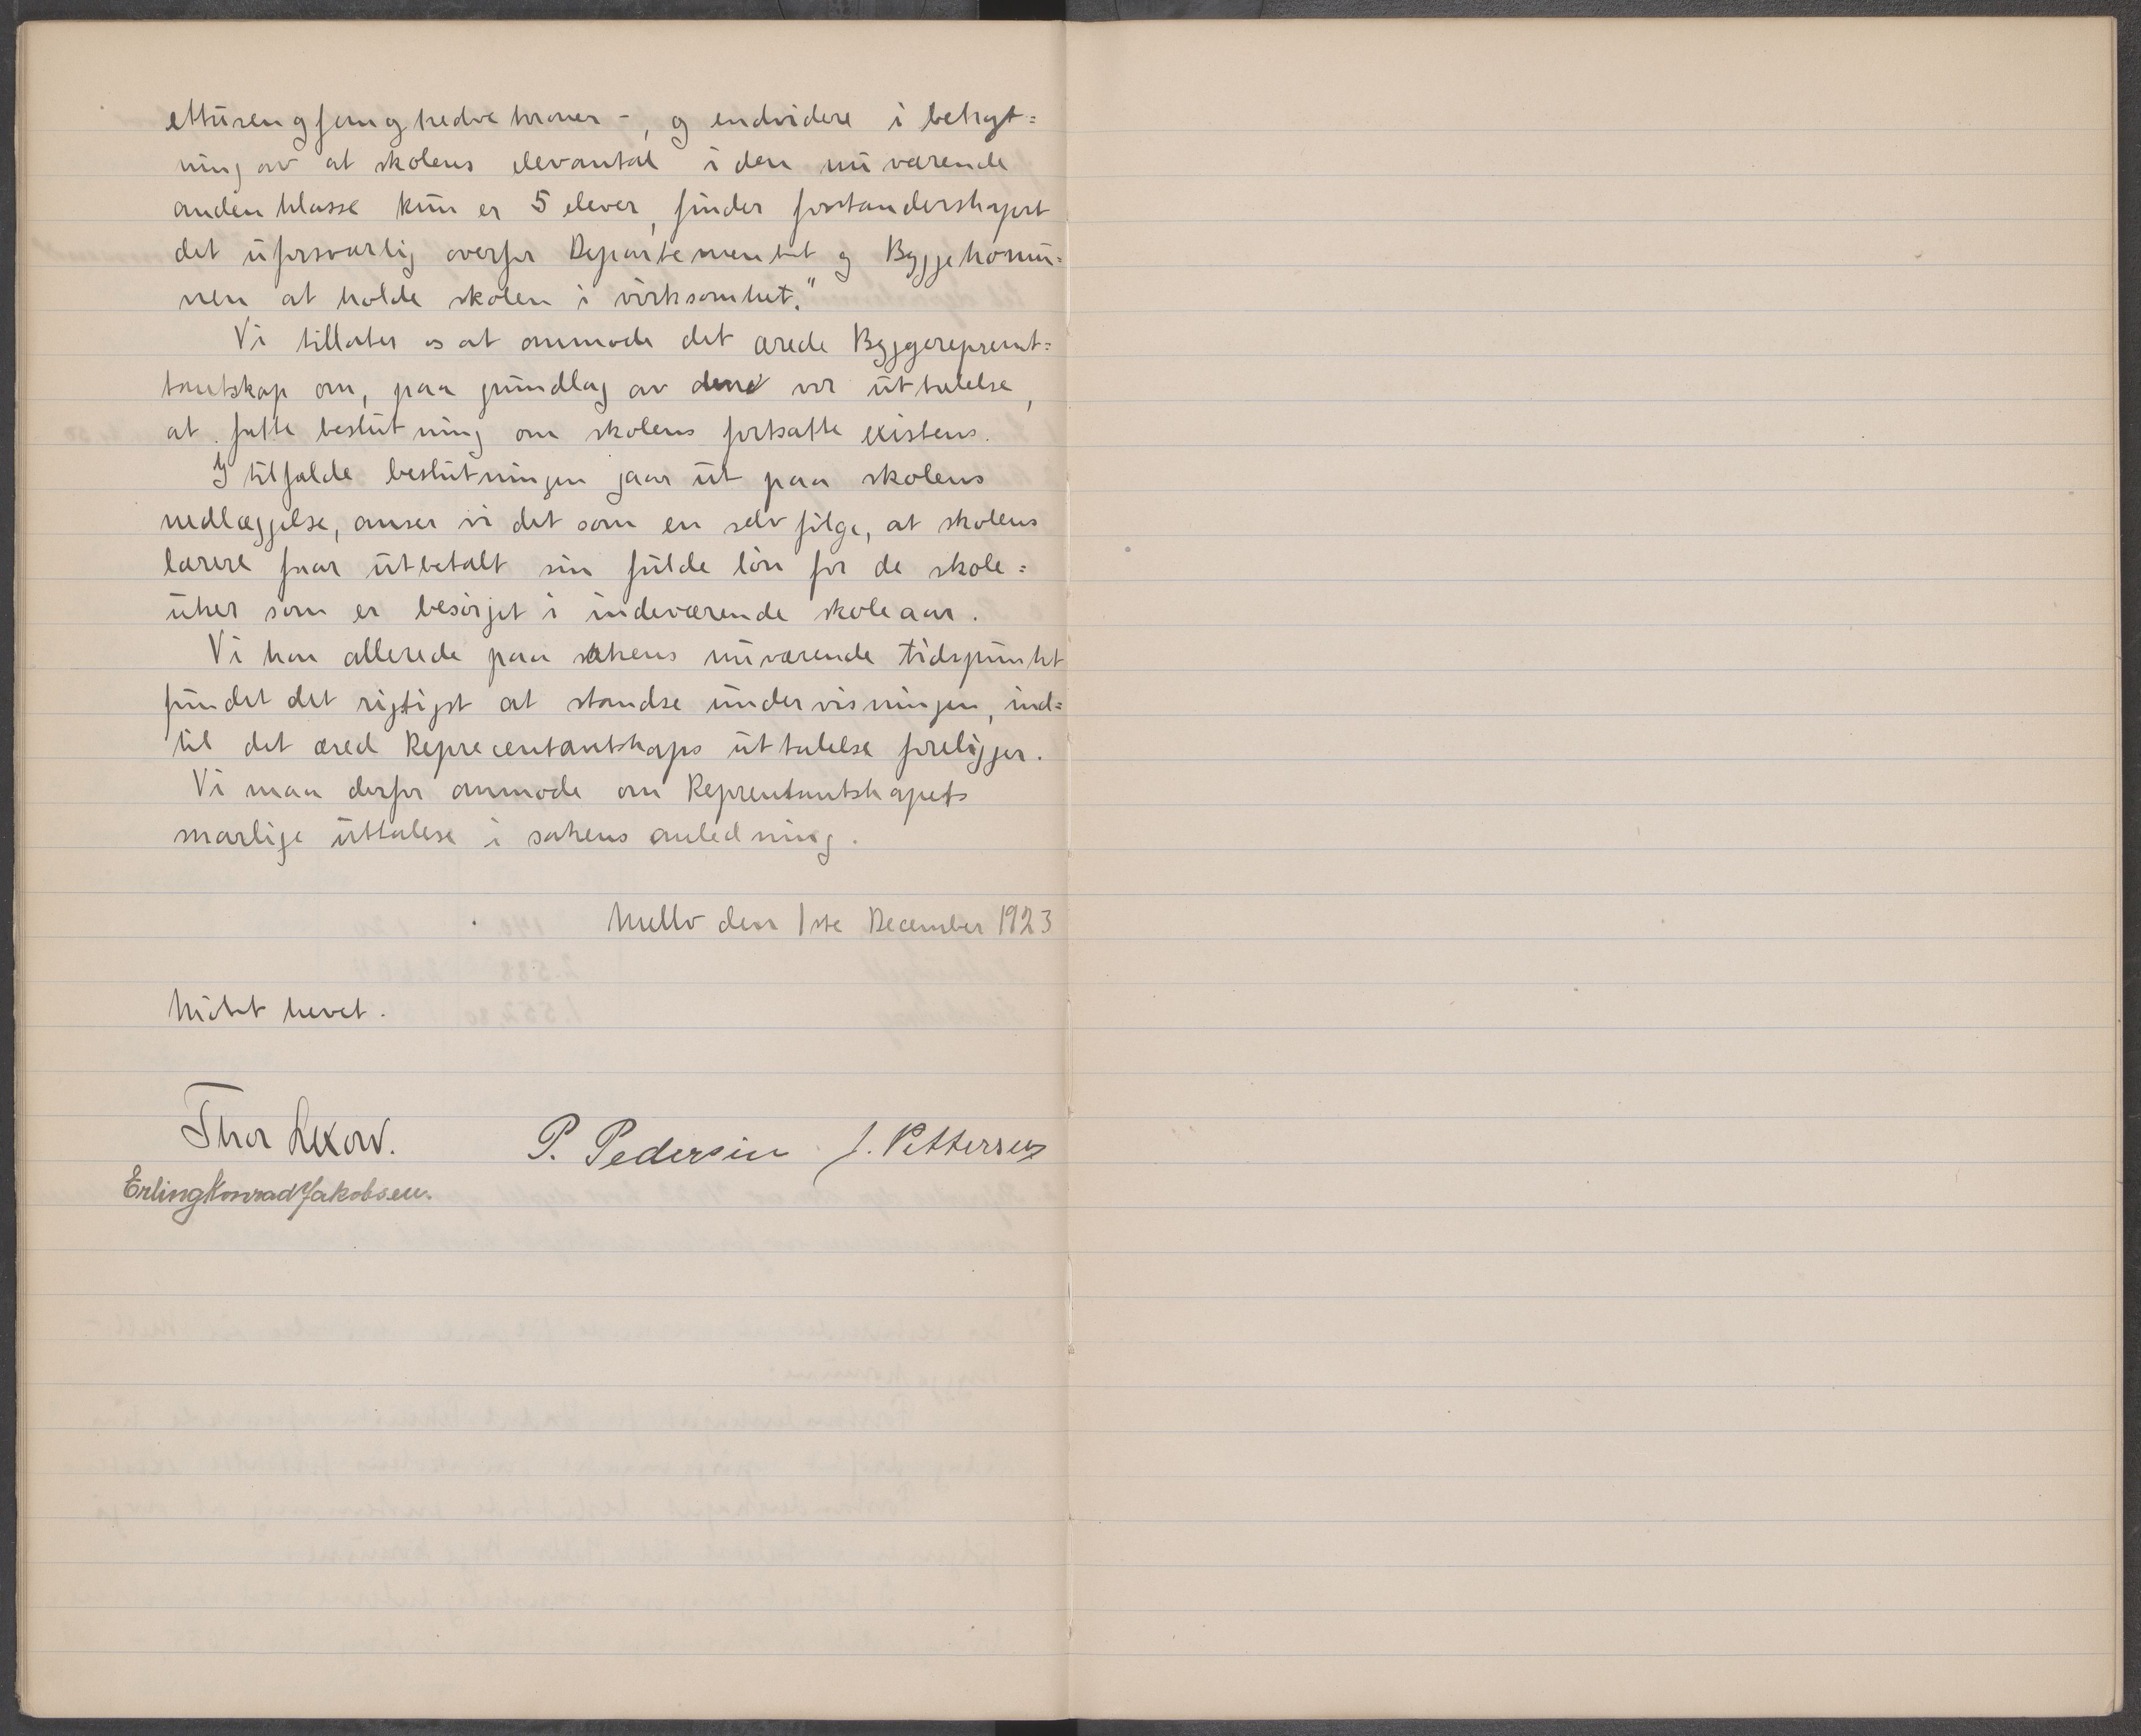 ettusen og femoghedve kroner -, og endvidere i betragt=
ning av at skolens elevantal i den nuværende
anden klasse kun er 5 elever, finder forstanderskapet
det uforsvarlig overfor Departementet og Byggekomu=
nen at holde skolen i virksomhet."
Vi tillater os at anmode det ærede Byggerepresent=
tantskap om, paa grundlag av denne vor uttalelse,
at fatte beslutning om skolens fortsatte existens.
I tilfælde beslutningen gaar ut paa skolens
nedlæggelse, anser vi det som en selvfølge, at skolens
lærere faar utbetalt sin fulde løn for de skole=
uker som er besørget i indeværende skoleaar.
Vi har allerede paa sakens nuværende tidspunkt
fundet det rigtigst at standse undervisningen, ind=
til det æred Reprecentantskaps uttalelse foreligger.
Vi maa derfor anmode om Reprentantskapets
snarlige uttalese i sakens anledning.
den 1ste December 1923
Møtet hevet.
Thor Lexow.
P. Pedersen
J. Pettersen
Erling Konrad Jakobsen.